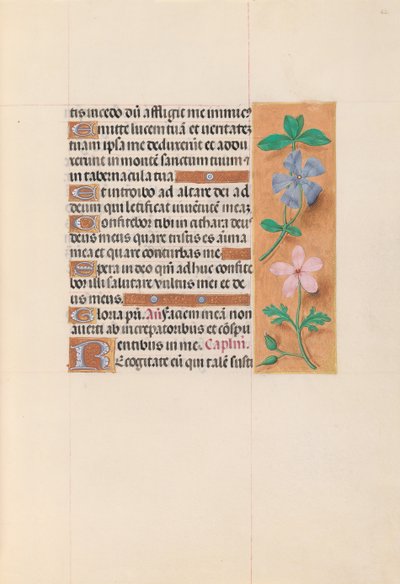 42
tis incedo dū affligit me inimicꝰ
Emitte lucem tuā et ueritatē
tuam ipsa me deduxerūt et addu
xerunt in montē sanctum tuum ⁊
in tabernacula tua
Et introibo ad altare dei ad
deum qui letificat iuuētutē meā
Confitebor tibi in cithara deus
deus meus quare tristis es aīma
mea et quare conturbas me
Spera in deo qm̄ adhuc confite
bor illi salutare vultus mei et de
us meus.
Gloria pr̄i. Añ. Faciem meā non
auerti ab increpatoribus et cōspu
entibus in me. Caplm̄.
Recogitate eū qui talē susti